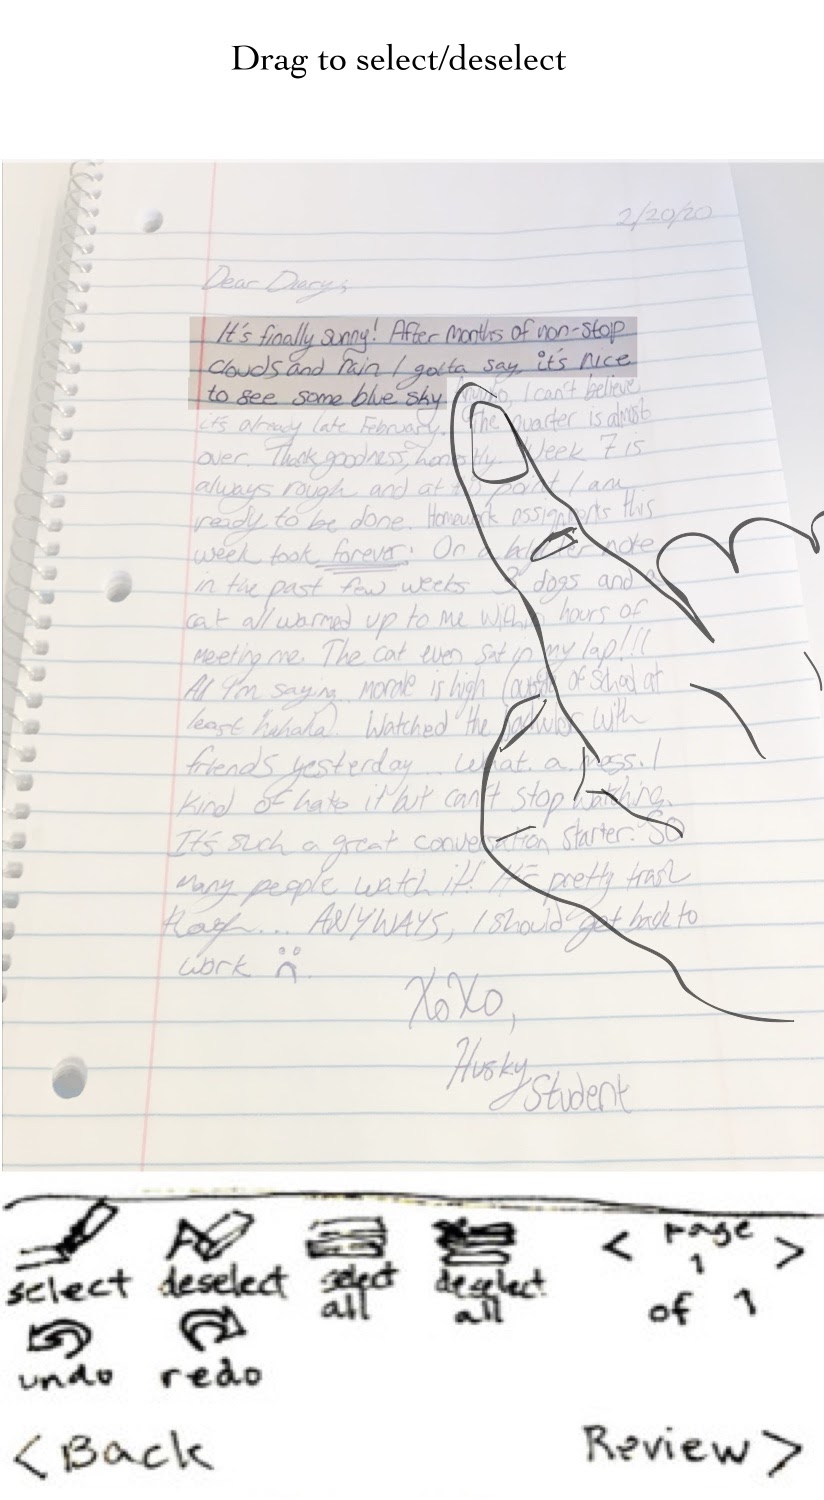 Drag to select/deselect
2/20/20
Dear Diary,
It's finally sunny! After months of non-stop
clouds and rain I gotta say it's nice
to see some blue sky. I can't believe
it's already late February. The quarter is almost
over. Thank goodness, honestly. Week 7 is
always rough and at point I am
ready to be done. Homework assignments this
week took forever. On a note
in the past few weeks 3 dogs and a
cat all warmed up to me within hours of
meeting me. The cat even sat in my lap!!!
All I'm saying morale is high (outside of school at
least hahaha). Watched the Bachelor with
friends yesterday... What. a. mess. I
kind of hate it but can't stop watching.
It's such a great conversation starter. So
many people watch it! It's pretty trash
though... ANYWAYS, I should get back to
work
XoXo,
Husky
Student
select deselect select all deselect all < Page 1 of 1 >
undo redo
< Back Review >